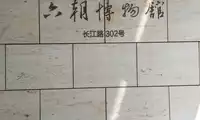 六朝博物館
长江路302号